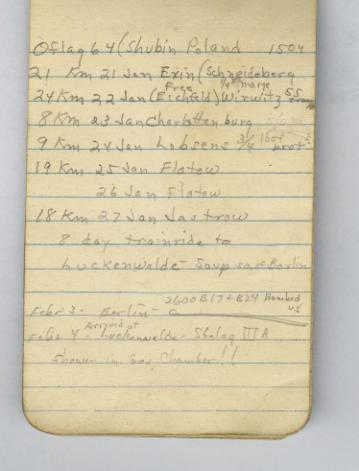 Oflag 64 (Shubin Poland 1504
21 Km 21 Jan Exin (Schneideberg
Free 1/4 marge
24 Km 22 Jan (Eichfeld) Wirwitz SS
8 Km 23 Jan Charlottenburg
9 Km 24 Jan Lobsens 3/4 brot
19 Km 25 Jan Flatow
26 Jan Flatow
18 Km 27 Jan Jastrow
8 day trainride to
Luckenwalde - Soup Berlin
2600 B17 + B24 Bombed
us
Febr 3 - Berlin -
Arrived at
Febr 4 - Luckenwalde - Stalag III A
Shower in Gas Chamber!!